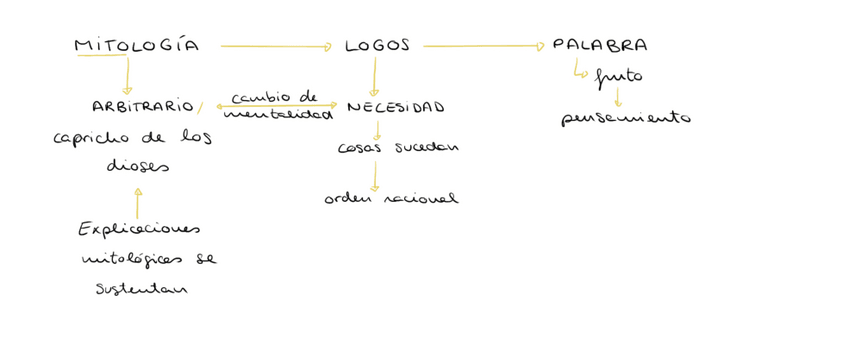 MITOLOGÍA
LOGOS
PALABRA
fruto
pensamiento
ARBITRARIO /
capricho de los
dioses
cambio de
mentalidad
NECESIDAD
cosas sucedan
orden racional
Explicaciones
mitológicas se
sustentan